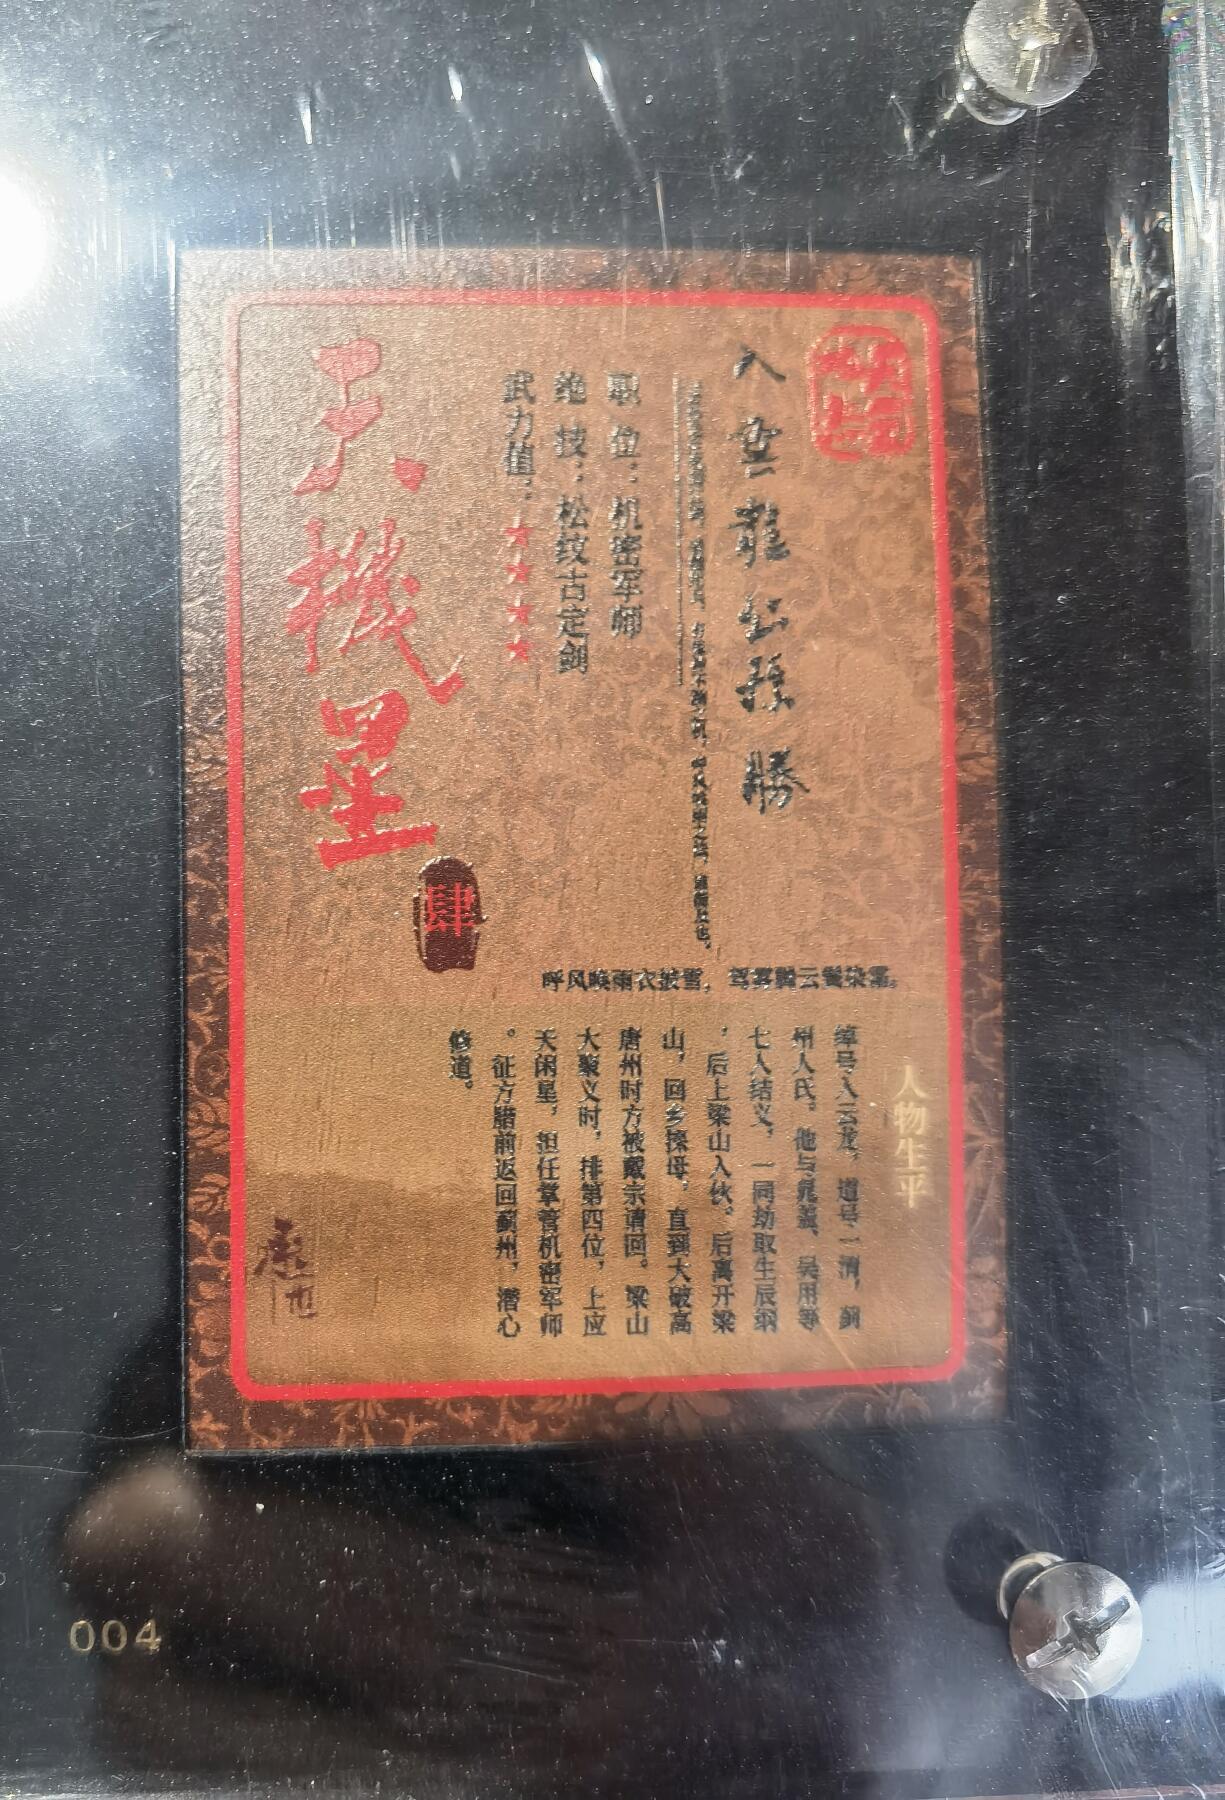 入雲龍公孫勝
职位：机密军师
绝技：松纹古定剑
武力值：★★★★
天機星
肆
呼风唤雨衣披雪，驾雾腾云鬓染霜。
人物生平
绰号入云龙，道号一清，蓟
州人氏。他与晁盖、吴用等
七人结义，一同劫取生辰纲
，后上梁山入伙。后离开梁
山，回乡探母，直到大破高
唐州时方被戴宗请回。梁山
大聚义时，排第四位，上应
天闲星，担任掌管机密军师
。征方腊前返回蓟州，潜心
修道。
004